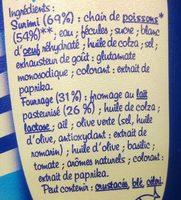 Ingrédients :
Surimi (69%) : chair de poissons*
(54%)**, eau ; fécules ; sucre ; blanc
d'oeuf réhydraté ; huile de colza ; sel ;
exhausteur de goût : glutamate
monosodique ; colorant : extrait de
paprika.
Fourrage (31%) : fromage au lait
pasteurisé (26%) ; huile de colza ;
lactose ; ail ; olive verte (sel, huile
d'olive, antioxydant : extrait de
romarin) ; huile d'olive ; basilic ;
tomate ; arômes naturels ; colorant :
extrait de paprika.
Peut contenir : crustacés, blé, céleri.